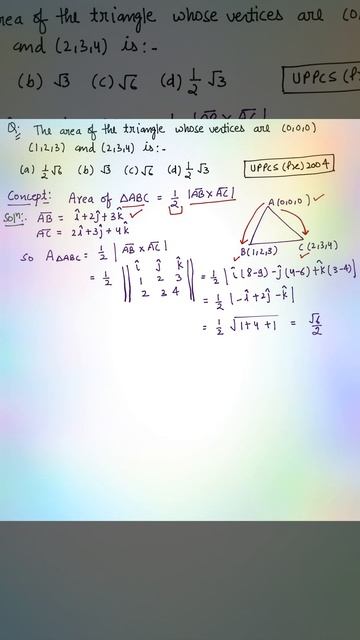 rea of the triangle whose vertices are (0,
and (2,3,4) is:-
(b) √3 (c) √6 (d) 1/2 √3
UPPCS (Pr
Q: The area of the triangle whose vertices are (0,0,0)
(1,2,3) and (2,3,4) is:-
(a) 1/2 √6 (b) √3 (c) √6 (d) 1/2 √3
UPPCS (Pre) 2004
Concept: Area of △ABC = 1/2 |AB × AC|
A(0,0,0)
B(1,2,3)
C(2,3,4)
Solⁿ: AB = î+2ĵ+3k̂
AC = 2î+3ĵ+4k̂
so A△ABC = 1/2 |AB × AC|
= 1/2 || î ĵ k̂
1 2 3
2 3 4 || = 1/2 |î(8-9)-ĵ(4-6)+k̂(3-4)|
= 1/2 |-î+2ĵ-k̂|
= 1/2 √1+4+1 = √6/2